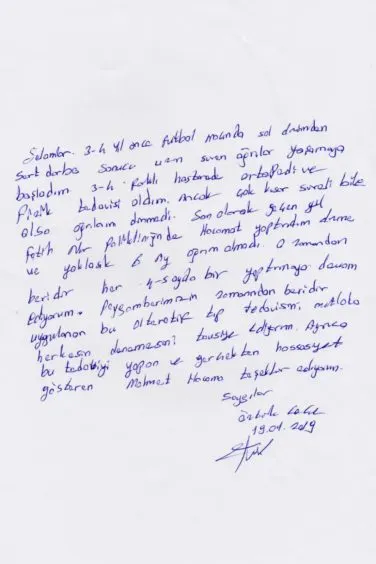 Selamlar. 3-4 yıl önce futbol maçında sol dizimden
sert darbe sonucu uzun süren ağrılar yaşamaya
başladım. 3-4 farklı hastanede ortopedi ve
Fizik tedavisi aldım. Ancak çok kısa süreli bile
olsa ağrılarım dinmedi. Son olarak geçen yıl
Fatih Nur Polikliniğinde Hacamat yaptırdım dizime
ve yaklaşık 6 ay ağrım olmadı. O zamandan
beridir her 4-5 ayda bir yaptırmaya devam
Ediyorum. Peygamberimizin zamanından beridir
uygulanan bu alternatif tıp tedavisini, mutlaka
herkesin denemesini tavsiye ediyorum. Ayrıca
bu tedaviyi yapan ve gerçekten hassasiyet
gösteren Mehmet Hocama teşekkür ediyorum.
Saygılar
19.01.2019